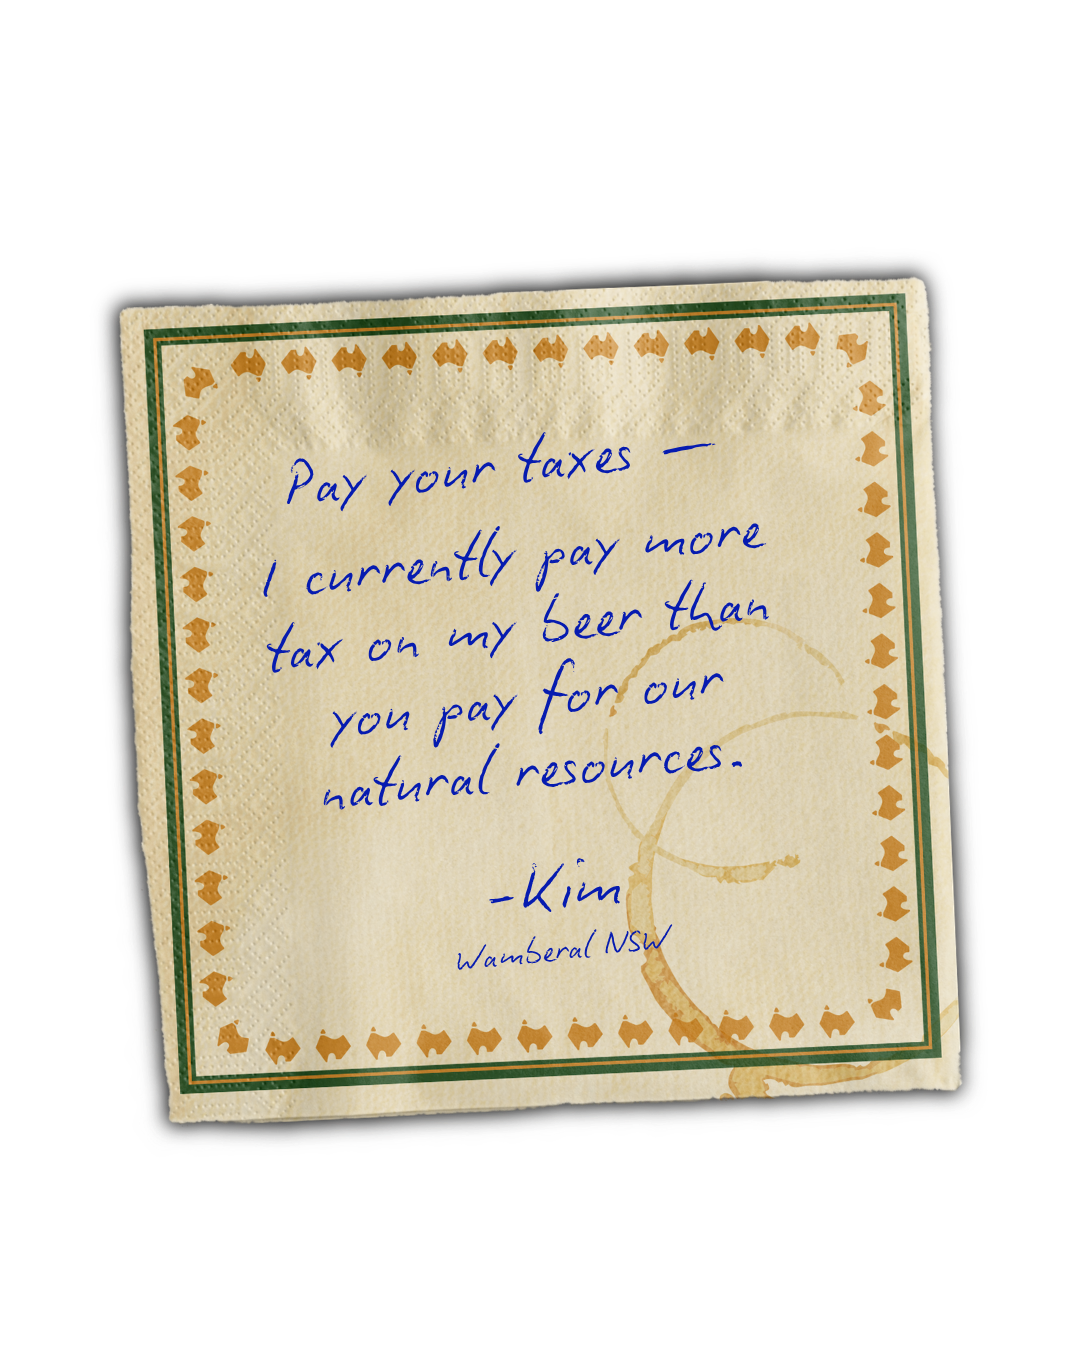 Pay your taxes —
I currently pay more
tax on my beer than
you pay for our
natural resources.
-Kim
Wamberal NSW